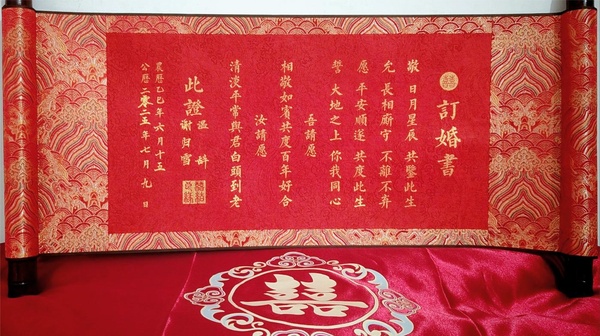 訂婚書
敬 日月星辰 共鑒此生
允 長相廝守 不離不弃
愿 平安順遂 共度此生
誓 大地之上 你我同心
吾請愿
相敬如賓共度百年好合
汝請愿
清淡平常與君白頭到老
此證
温
谢归雪
農曆乙巳年六月十五
公曆二零二五年七月九日
囍